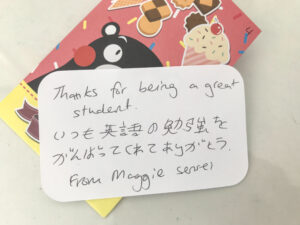 Thanks for being a great
student.
いつも英語の勉強を
がんばってくれてありがとう.
From Maggie sensei